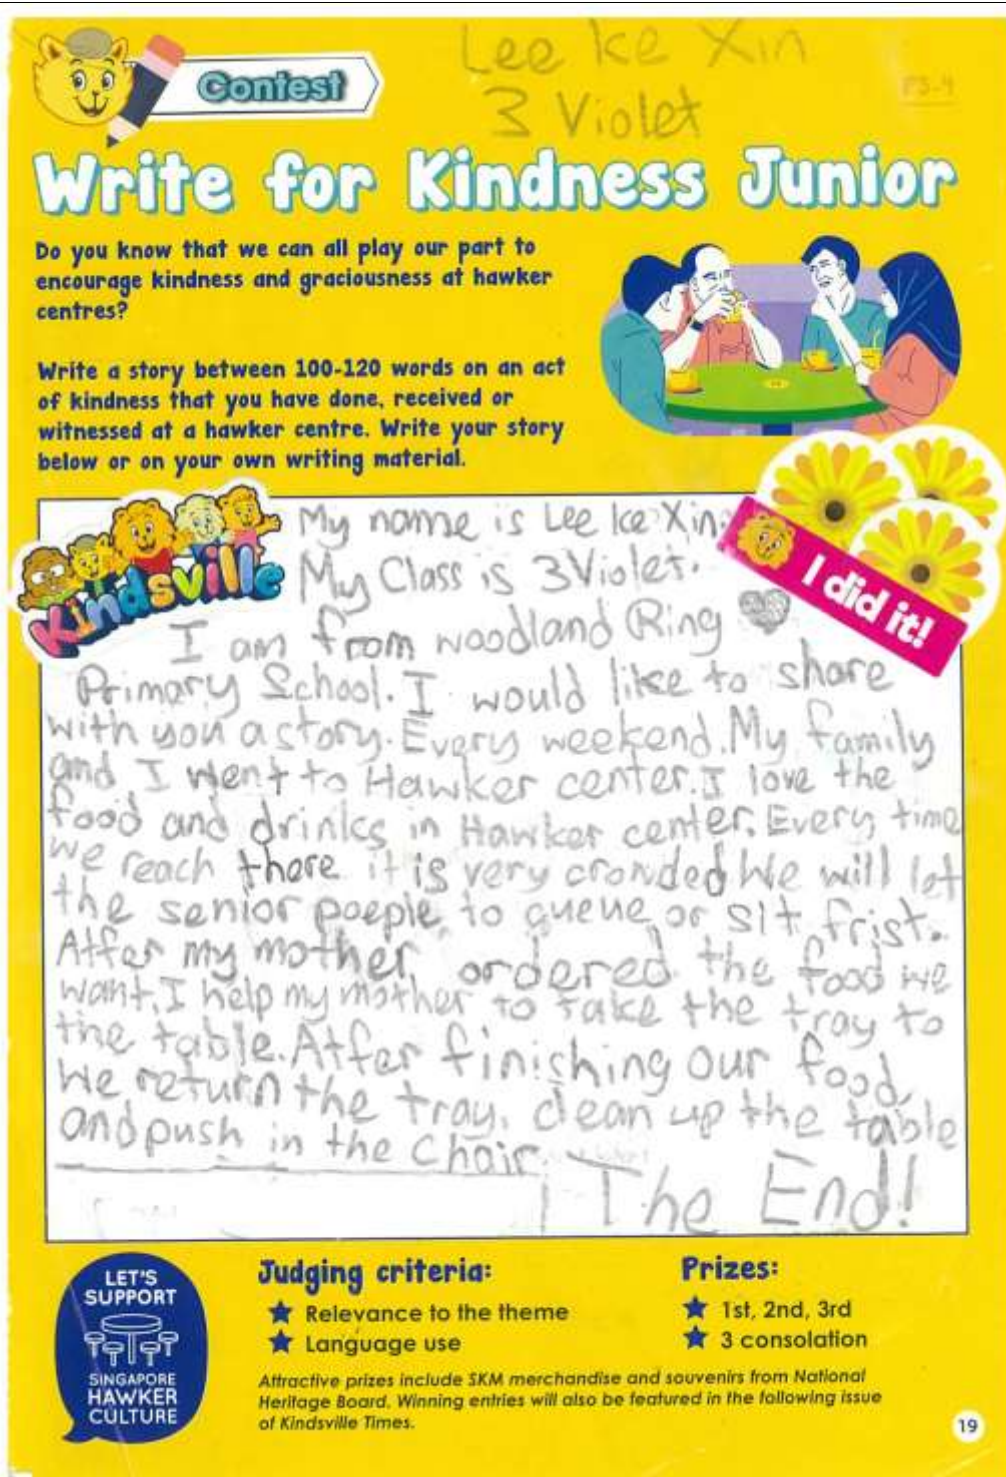 Lee ke Xin
3 Violet
P3-4
Contest
Write for Kindness Junior
Do you know that we can all play our part to
encourage kindness and graciousness at hawker
centres?
Write a story between 100-120 words on an act
of kindness that you have done, received or
witnessed at a hawker centre. Write your story
below or on your own writing material.
Kindsville
I did it!
My name is Lee ke Xin.
My Class is 3Violet.
I am from woodland Ring
Primary School. I would like to share
with you a story. Every weekend. My family
and I went to Hawker center. I love the
food and drinks in Hawker center. Every time
we reach there it is very crowded We will let
the senior poeple to queue or sit frist.
Atfer my mother ordered the food we
want, I help my mother to take the tray to
the table. Atfer finishing our food,
we return the tray, clean up the table
and push in the Chair.
The End!
LET'S
SUPPORT
SINGAPORE
HAWKER
CULTURE
Judging criteria:
Relevance to the theme
Language use
Prizes:
1st, 2nd, 3rd
3 consolation
Attractive prizes include SKM merchandise and souvenirs from National
Heritage Board. Winning entries will also be featured in the following issue
of Kindsville Times.
19